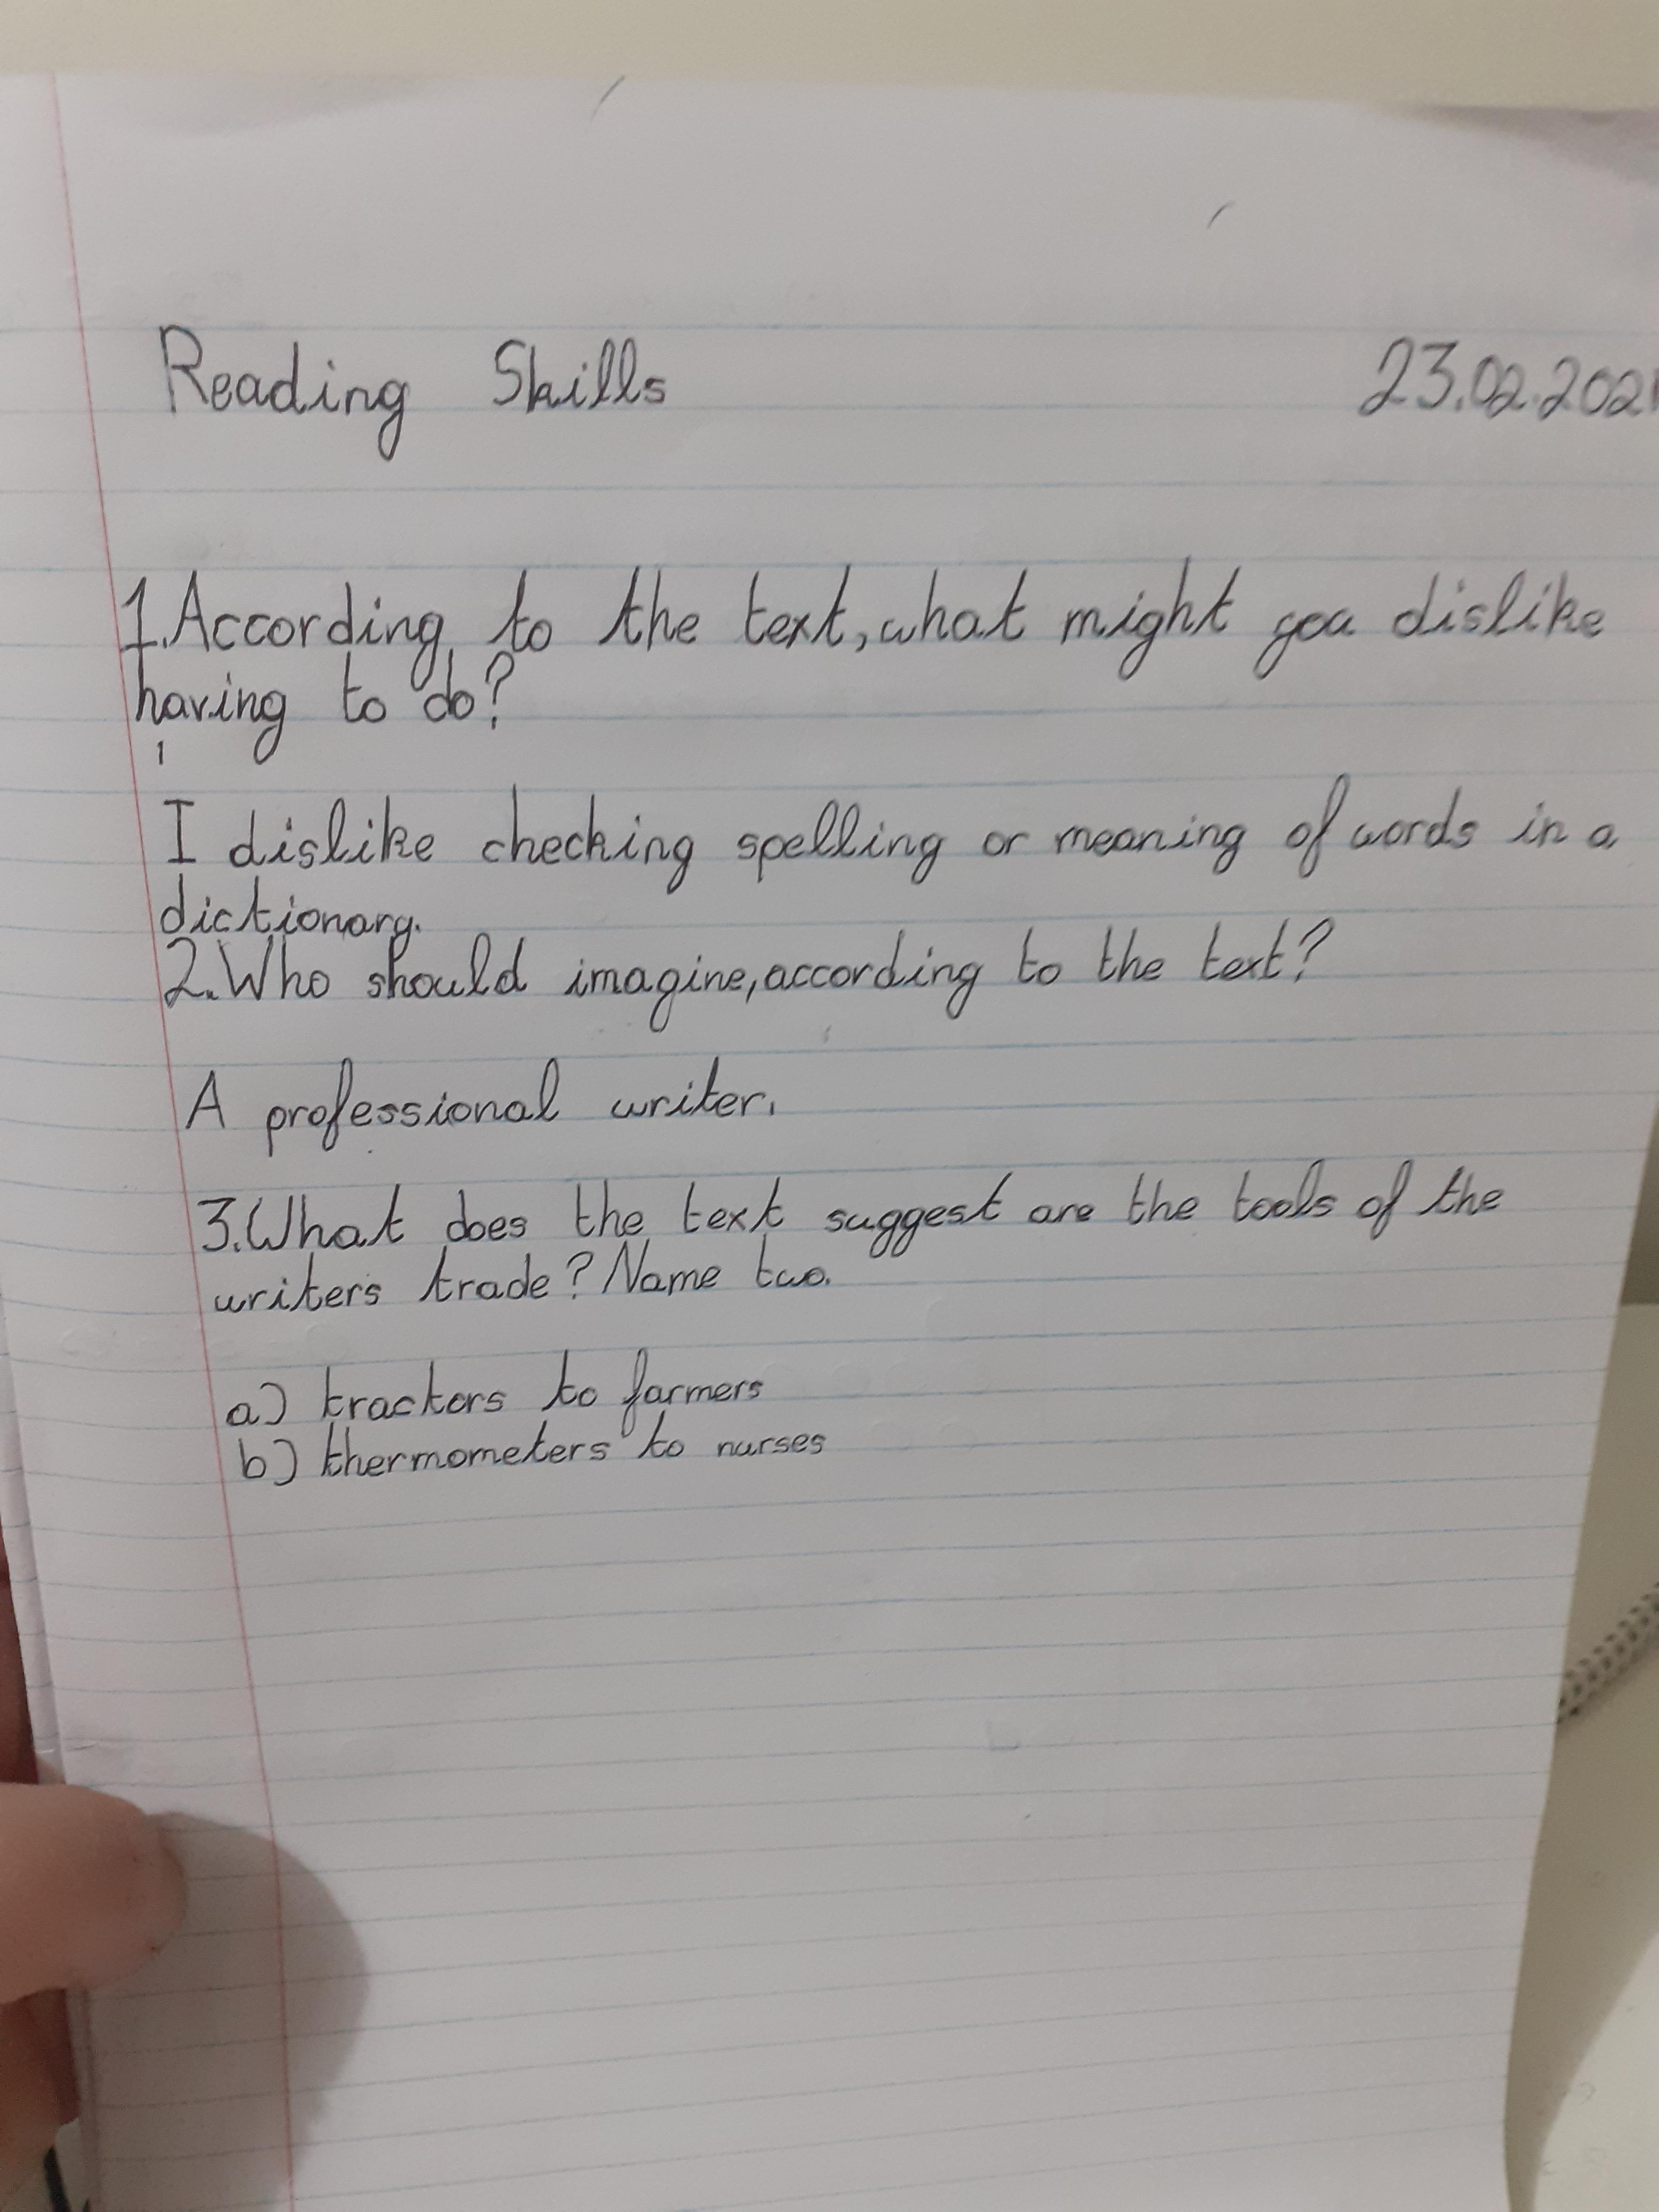 Reading Skills 23.02.2021
1.According to the text, what might you dislike
having to do?
I dislike checking spelling or meaning of words in a
dictionary.
2.Who should imagine, according to the text?
A professional writer.
3.What does the text suggest are the tools of the
writers trade? Name two.
a) tractors to farmers
b) thermometers to nurses